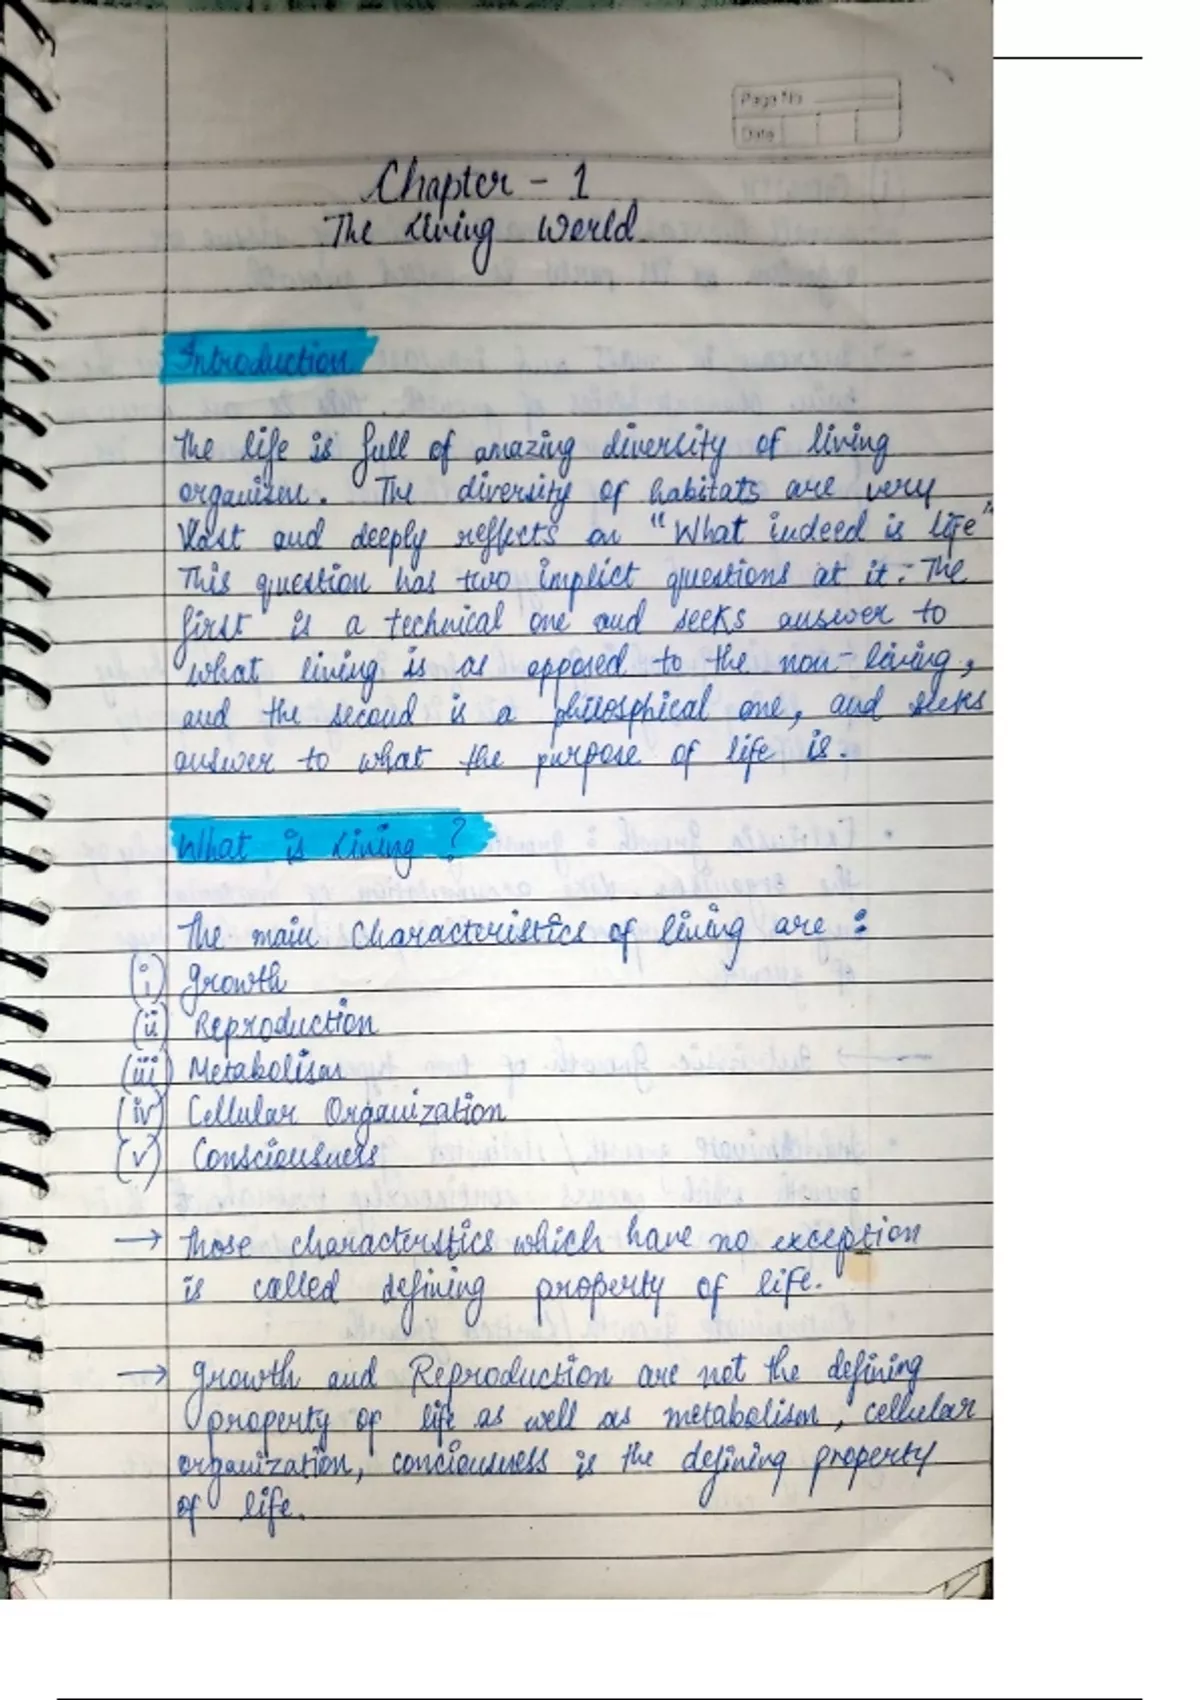 Page No
Date
Chapter - 1
The Living World
Introduction
The life is full of amazing diversity of living
organism. The diversity of habitats are very
Vast and deeply reffects on "What indeed is life"
This question has two implict questions at it: The
first is a technical one and seeks answer to
what living is as opposed to the non-living,
and the second is a philosphical one, and seeks
answer to what the purpose of life is.
What is Living ?
The main Characteristics of living are :
(i) Growth
(ii) Reproduction
(iii) Metabolism
(iv) Cellular Organization
(v) Consciousness
→ Those characterstics which have no exception
is called defining property of life.
→ Growth and Reproduction are not the defining
property of life as well as metabolism, cellular
organization, conciousness is the defining property
of life.